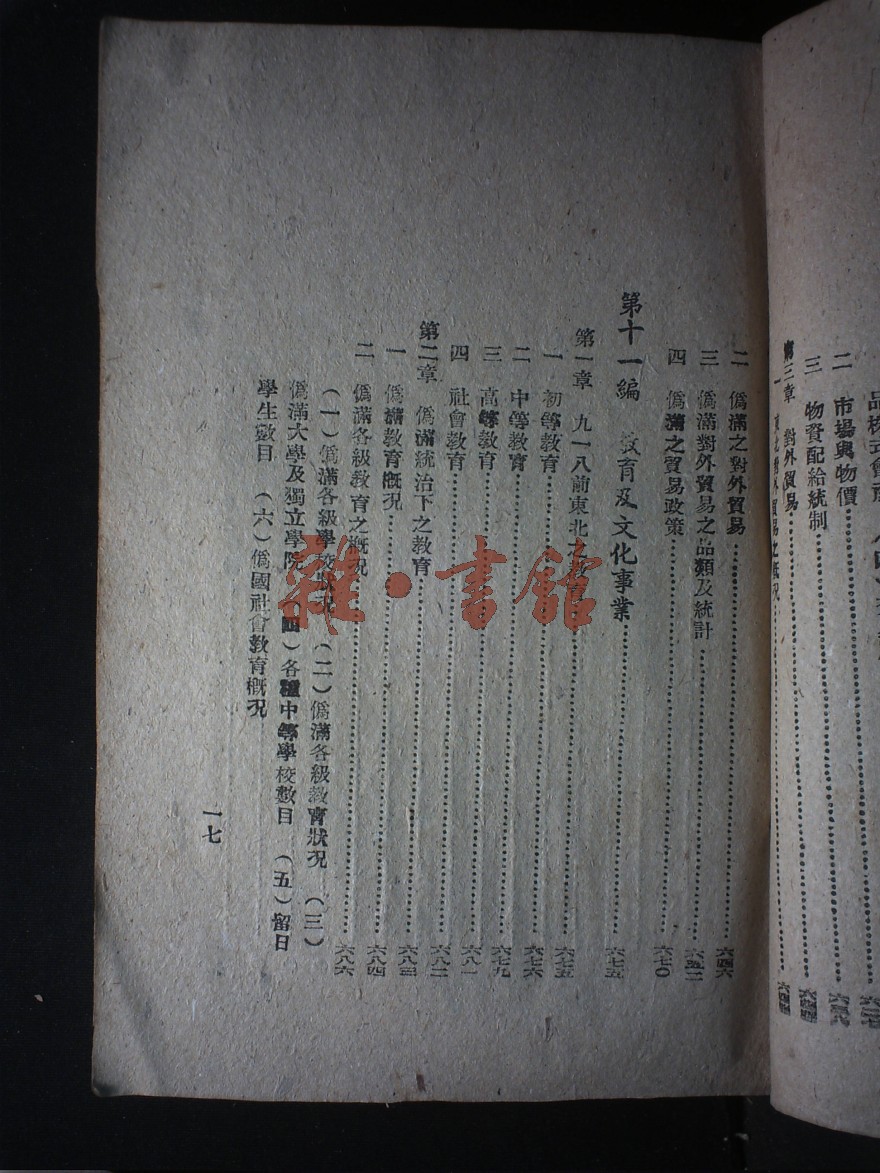 二 市場與物價
三 物資配給統制
第三章 對外貿易
一 東北對外貿易之概况
二 偽滿之對外貿易 六四六
三 偽滿對外貿易之品類及統計 六五二
四 偽滿之貿易政策 六七〇
第十一編 教育及文化事業 六七五
第一章 九一八前東北之教育 六七五
一 初等教育 六七五
二 中等教育 六七六
三 高等教育 六七九
四 社會教育 六八一
第二章 偽滿統治下之教育 六八二
一 偽滿教育概况 六八四
二 偽滿各級教育之概况 六八六
(一)偽滿各級學校狀况 (二)偽滿各級教育狀况 (三)
偽滿大學及獨立學院 (四)各種中等學校數目 (五)留日
學生數目 (六)偽國社會教育概况
一七
雜·書館